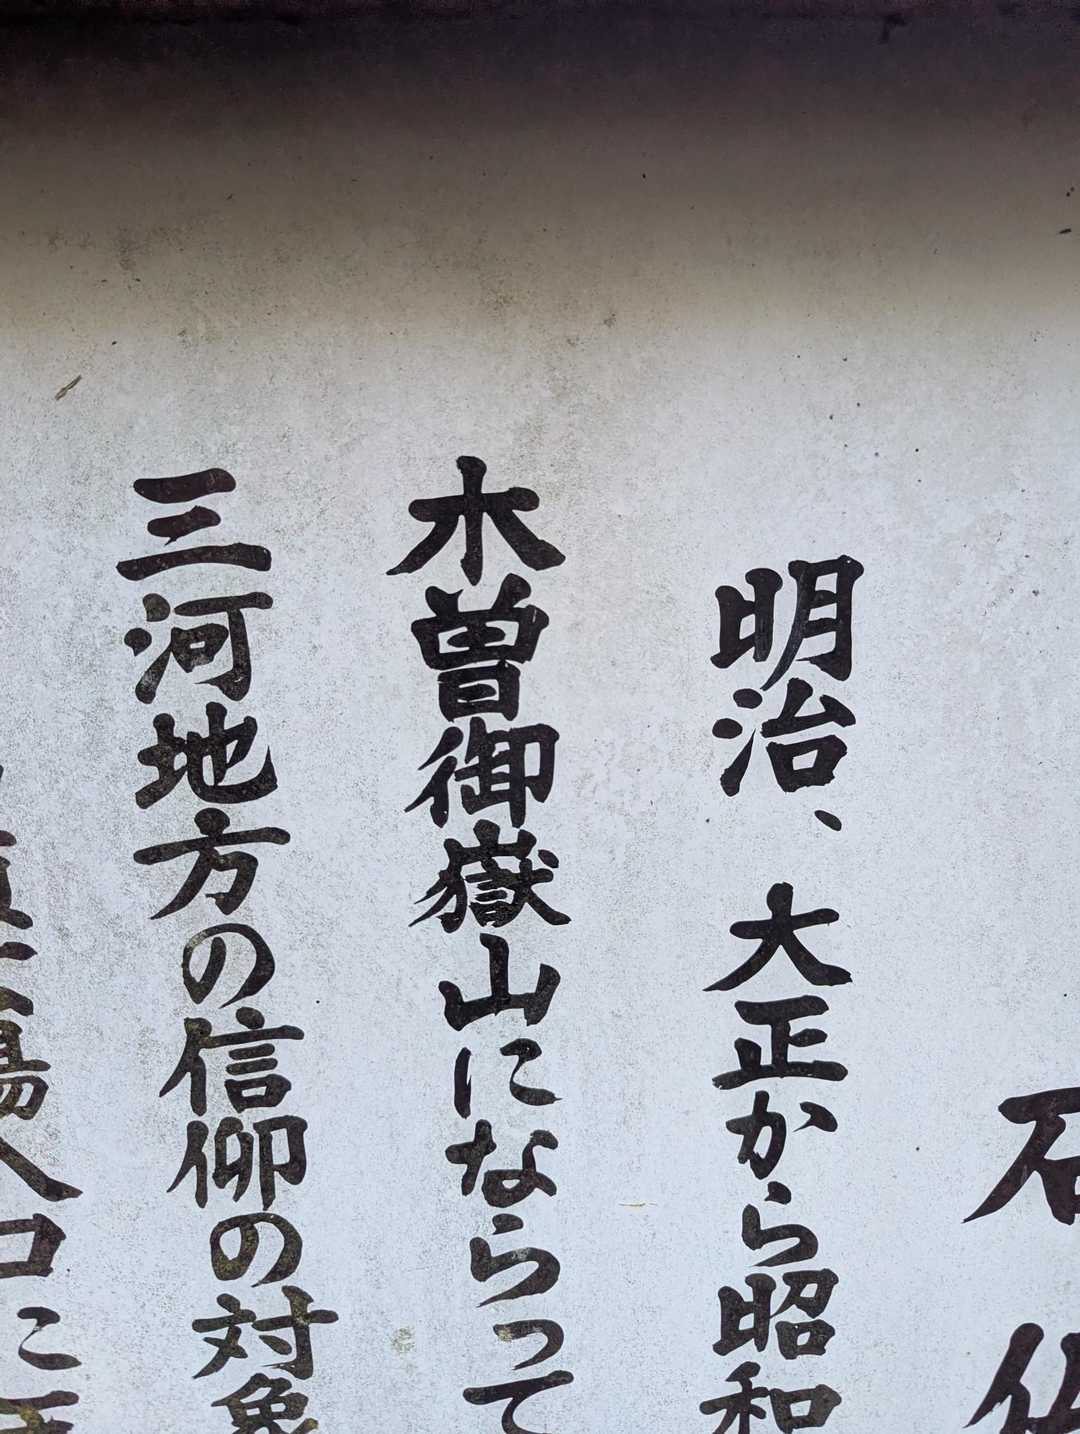 石仏
明治、大正から昭和
木曽御嶽山にならって
三河地方の信仰の対象
場入口に